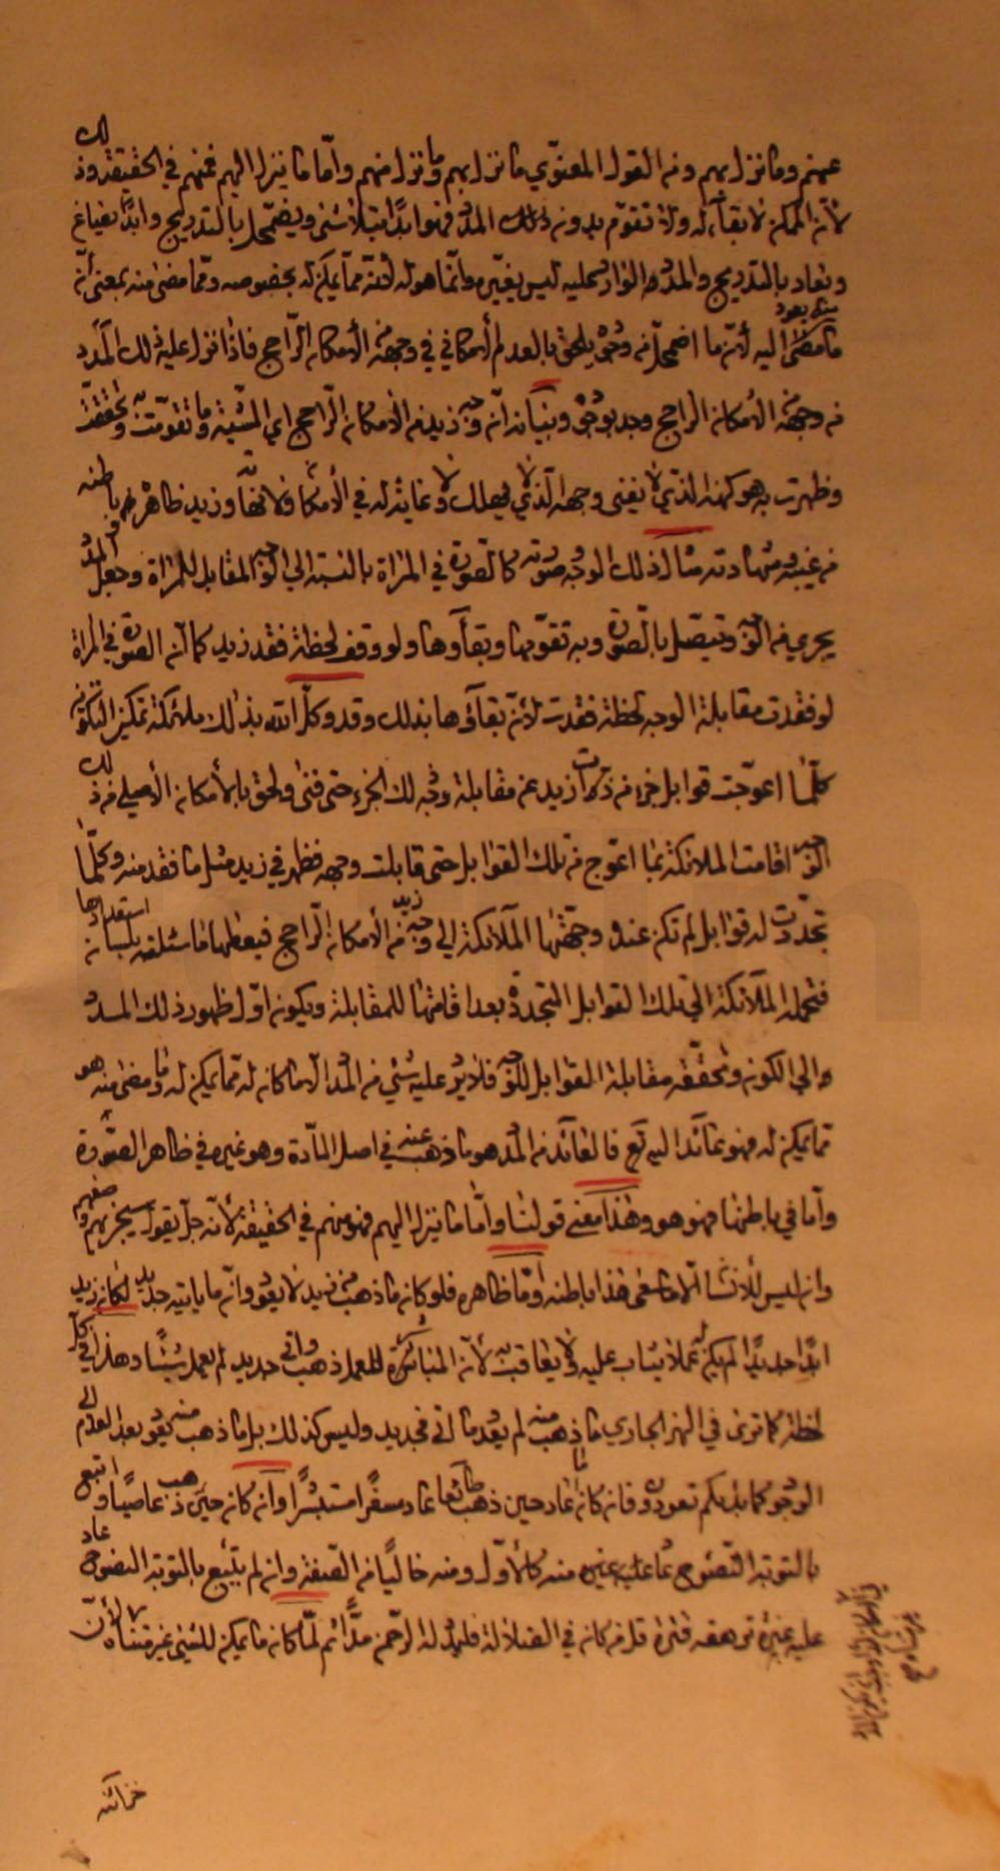 عنهم وما نزل بهم ومن القول المعنوي ما نزل بهم وما نزل منهم واما ما ينزل اليهم فمنهم في الحقيقة وذلك
لأن الممكن لا بقاء له ولا تقوم بدون ذلك المدد فهو ابدا يتلاشى ويضمحل بالتدريج وابدا يصاغ
ويعاد بالتدريج والمدد الوارد عليه ليس بغيره وانما هو له لانه مما يمكن له بخصوصه ومما مضى منه بمعنى أن
ما مضى منه يعود اليه لأن ما اضمحل من وجوده يلحق بالعدم الامكاني في وجهه من الأمكان الراجح فاذا نزل عليه ذلك المدد
من وجهه من الأمكان الراجح وجد بوجوده وبيانه أن وجه زيد من الأمكان الراجح اي المشية وما تقومت به وتحققت
وظهرت به هو كنهه الذي لا يفنى وجهه الذي لا يهلك ولا غاية له في الأمكان ولا نهاية وزيد ظاهره وباطنه
من غيبه وشهادته مثال لذلك الوجه وصورته كالصورة في المرآة بالنسبة الى الوجه المقابل للمرآة وجعل المدد
يجري من الوجه ويتصل بالصورة وبه تقومها وبقاؤها ولو وقف لحظة فقد زيد كما أن الصورة في المرآة
لو فقدت مقابلة الوجه لحظة فقدت لأن بقاؤها بذلك وقد وكل الله بذلك ملائكة تمكين التكوين
كلما اعوجت قوابل جزء من ذرات زيد عن مقابلة وجه ذلك الجزء حتى فنى ولحق بالأمكان الأصلي من ذلك
الوجه اقامت الملائكة بما اعوج من تلك القوابل حتى قابلت وجهه فظهر في زيد مثل ما فقد منه وكلما
تجددت له قوابل لم تكن عنده وجهتها الملائكة الى وجه زيد من الأمكان الراجح فيعطيها ما سئلته بلسان استعدادها
فتحمله الملائكة الى تلك القوابل المتجددة بعد اقامتها للمقابلة ويكون اول ظهور ذلك المدد
والى الكون وتحققه مقابلة القوابل للوجه فلا يرد عليه شيء من المدد الا ما كان له مما يمكن له وما مضى منه هو
مما يمكن له فهو عائد اليه نعم فالعائد من المدد هو ما ذهب عنه في اصل المادة وهو غيره في ظاهر الصورة
وأما في باطنها فهو هو وهذا معنى قولنا واما ما ينزل اليهم فهو منهم في الحقيقة لأنه جل يقول سيجزيهم وصفهم
وان ليس للأنسان الا ما سعى هذا باطنه واما ظاهره فلو كان ما ذهب من زيد لا يعود وان ما يأتيه جديد لكان زيد
ابدا جديدا لم يكن له عملا يثاب عليه ولا يعاقب به لأن المباشر للعمل ذهب واتى جديد لم يعمل شيئا وهذا في كل
لحظة كما ترى في النهر الجاري ما ذهب منه لم يعد وما اتى فجديد وليس كذلك بل ما ذهب منه يعود بعد العدم الى
الوجود كما بدأكم تعودون فان كان ما عاد حين ذهب طائعا عاد مسفرا مستبشرا وان كان حين ذهب عاصيا واتبع
بالتوبة النصوح عاد عليه غيره منه كالأول ومنه خاليا من الصفة وان لم يتبع بالتوبة النصوح عاد
عليه غبرة ترهقه قترة قل من كان في الضلالة فليمدد له الرحمن مدا ثم لما كان ما يمكن للشيء غير متناه لأن
خزائنه